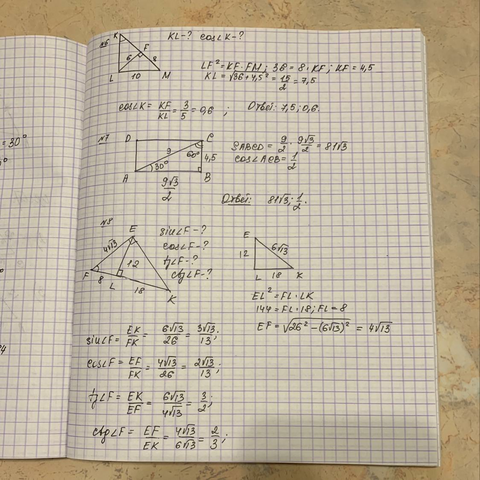 K
KL-? cos∠K-?
№6
F
6 8
L 10 M
LF² = KF · FM; 36 = 8 · KF; KF = 4,5
KL = √36 + 4,5² = 15/2 = 7,5
cos∠K = KF/KL = 3/5 = 0,6 ; Ответ: 7,5; 0,6.
= 30°
№7
D C
9 60° 4,5
30°
A B
9√3/2
SABCD = 9/2 · 9√3/2 = 81√3
cos∠ACB = 1/2
Ответ: 81√3; 1/2.
№8
E
4√13 12
F 8 L 18 K
sin∠F-?
cos∠F-?
tg∠F-?
ctg∠F-?
E
12 6√13
L 18 K
EL² = FL · LK
144 = FL · 18; FL = 8
EF = √26² - (6√13)² = 4√13
sin∠F = EK/FK = 6√13/26 = 3√13/13;
cos∠F = EF/FK = 4√13/26 = 2√13/13;
tg∠F = EK/EF = 6√13/4√13 = 3/2;
ctg∠F = EF/EK = 4√13/6√13 = 2/3;